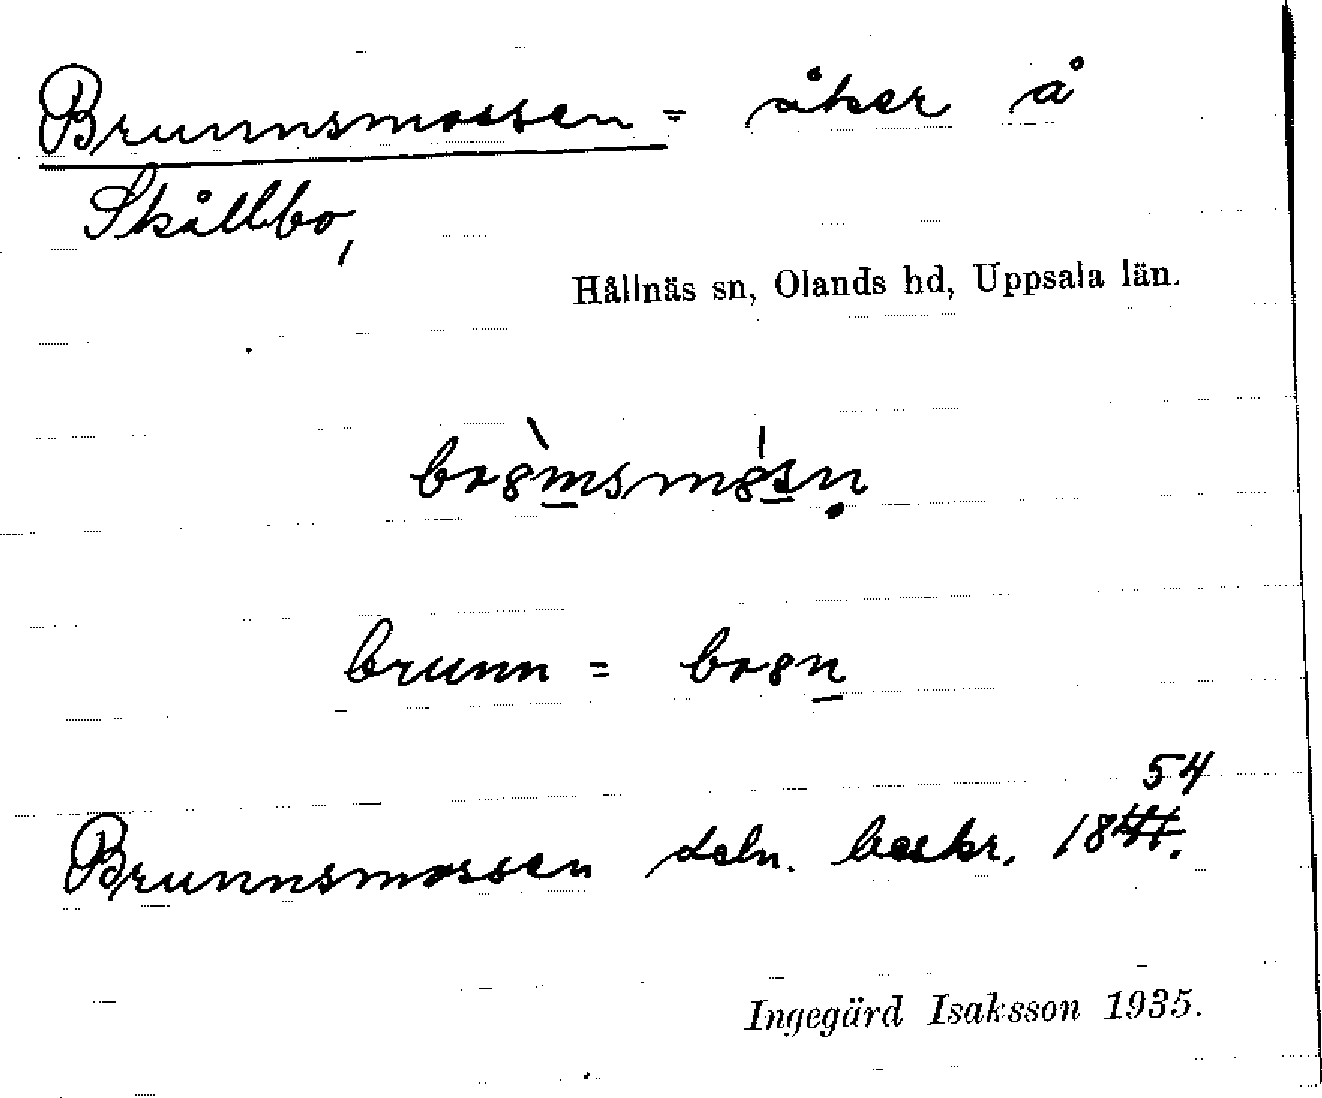 Brunnsmossen = åker å
Skållbo,
Hållnäs sn, Olands hd, Uppsala län.
br8̀msm8́sṇ
brunn = br8n
Brunnsmossen deln. beskr. 1854.
Ingegärd Isaksson 1935.